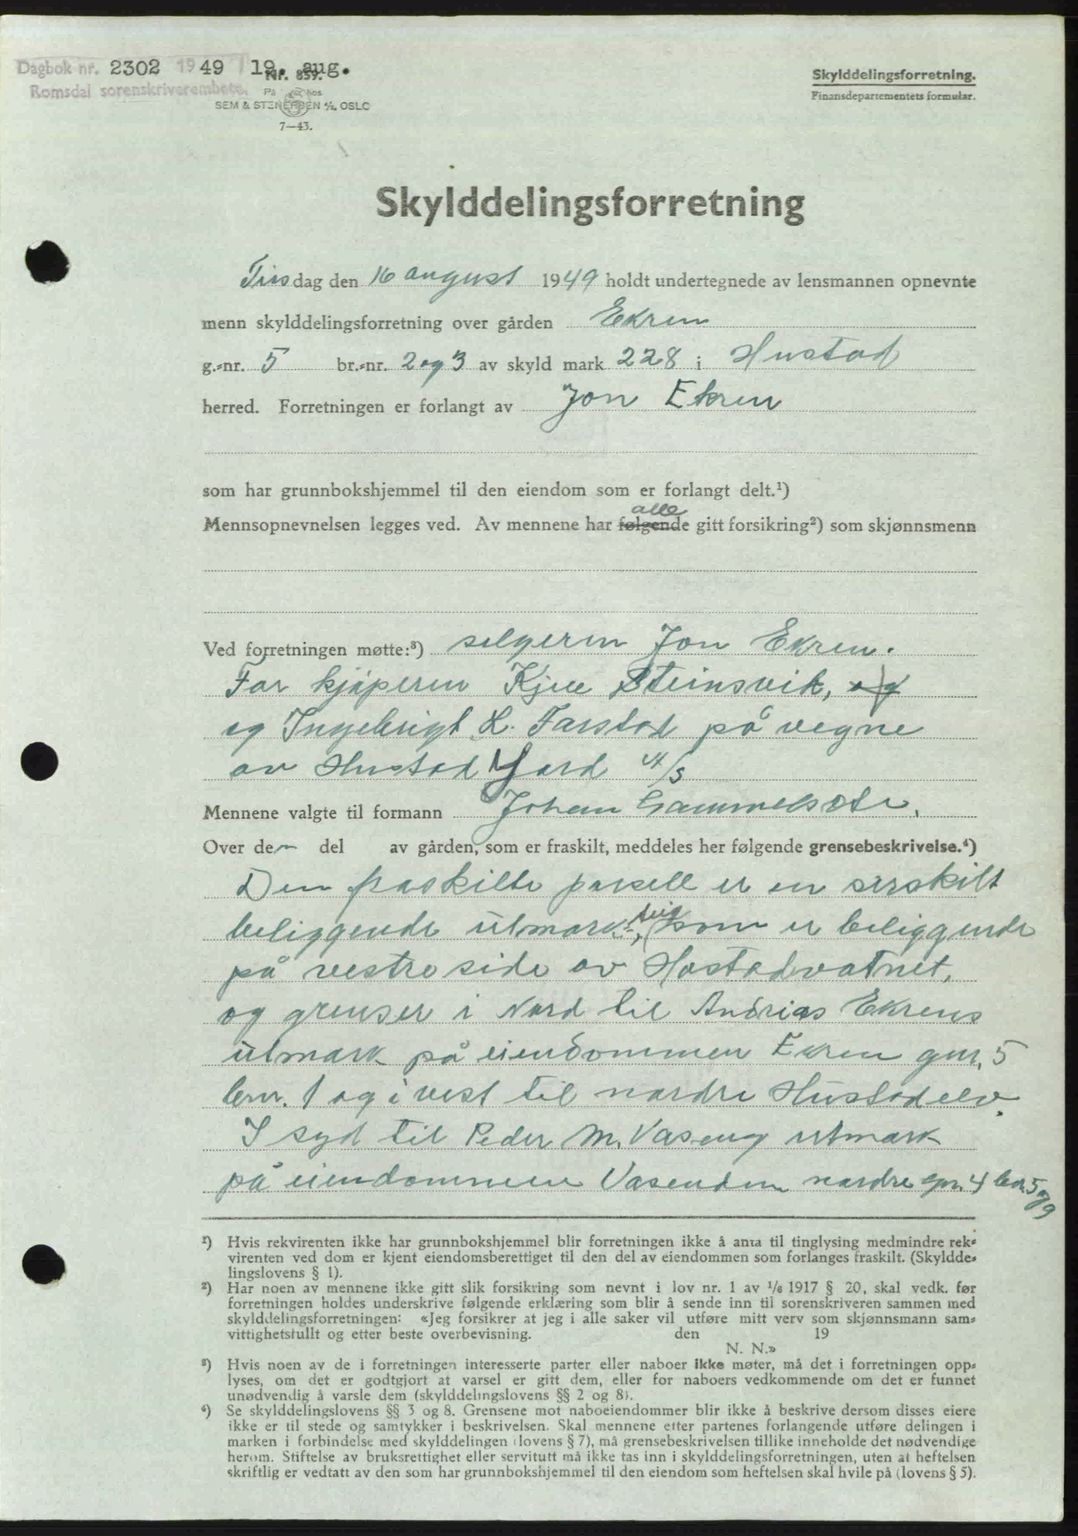 Dagbok nr. 2302 1949 19. aug.
Romsdal sorenskriverembete.
Nr. 859.
På hos
SEM & STENERSEN A/S, OSLO
7—43.
Skylddelingsforretning.
Finansdepartementets formular.
Skylddelingsforretning
Tirsdag den 16 august 1949 holdt undertegnede av lensmannen opnevnte
menn skylddelingsforretning over gården Ekren
g.-nr. 5 br.-nr. 2 og 3 av skyld mark 228 i Hustad
herred. Forretningen er forlangt av Jon Ekren
som har grunnbokshjemmel til den eiendom som er forlangt delt.¹)
alle
Mennsopnevnelsen legges ved. Av mennene har følgende gitt forsikring²) som skjønnsmenn
Ved forretningen møtte:³) selgeren Jon Ekren.
For kjøperen Kjell Steinsvik, og
og Ingebrigt K. Farstad på vegne
av Hustad Jord A/S
Mennene valgte til formann Johan Gammelsæter.
Over den del av gården, som er fraskilt, meddeles her følgende grensebeskrivelse.⁴)
Den fraskilte parsell er en serskilt
beliggende utmark-teig, som er beliggende
på vestre side av Hostadvatnet,
og grenser i Nord til Andrias Ekrens
utmark på eiendommen Ekren gnr. 5
brn. 1 og i vest til nordre Hustadelv.
I syd til Peder M. Vaseng utmark
på eiendommen Vasenden nordre gnr. 4 bnr. 5 og 9
¹) Hvis rekvirenten ikke har grunnbokshjemmel blir forretningen ikke å anta til tinglysing medmindre rek-
virenten ved dom er kjent eiendomsberettiget til den del av eiendommen som forlanges fraskilt. (Skyldde-
lingslovens § 1).
²) Har noen av mennene ikke gitt slik forsikring som nevnt i lov nr. 1 av ¹/₆ 1917 § 20, skal vedk. før
forretningen holdes underskrive følgende erklæring som blir å sende inn til sorenskriveren sammen med
skylddelingsforretningen: «Jeg forsikrer at jeg i alle saker vil utføre mitt verv som skjønnsmann sam-
vittighetsfullt og etter beste overbevisning. den 19
N. N.»
³) Hvis noen av de i forretningen interesserte parter eller naboer ikke møter, må det i forretningen opp-
lyses, om det er godtgjort at varsel er gitt dem, eller for naboers vedkommende om det er funnet
unødvendig å varsle dem (skylddelingslovens §§ 2 og 8).
⁴) Se skylddelingslovens §§ 3 og 8. Grensene mot naboeiendommer blir ikke å beskrive dersom disses eiere
ikke er til stede og samtykker i beskrivelsen. Skal mennene etter partenes forlangende utføre delingen i
marken i forbindelse med skylddelingen (lovens § 7), må grensebeskrivelsen tillike inneholde det nødvendige
herom. Stiftelse av bruksrettighet eller servitutt må ikke tas inn i skylddelingsforretningen, uten at heftelsen
skriftlig er vedtatt av den som har grunnbokshjemmel til den eiendom som heftelsen skal hvile på (lovens § 5).